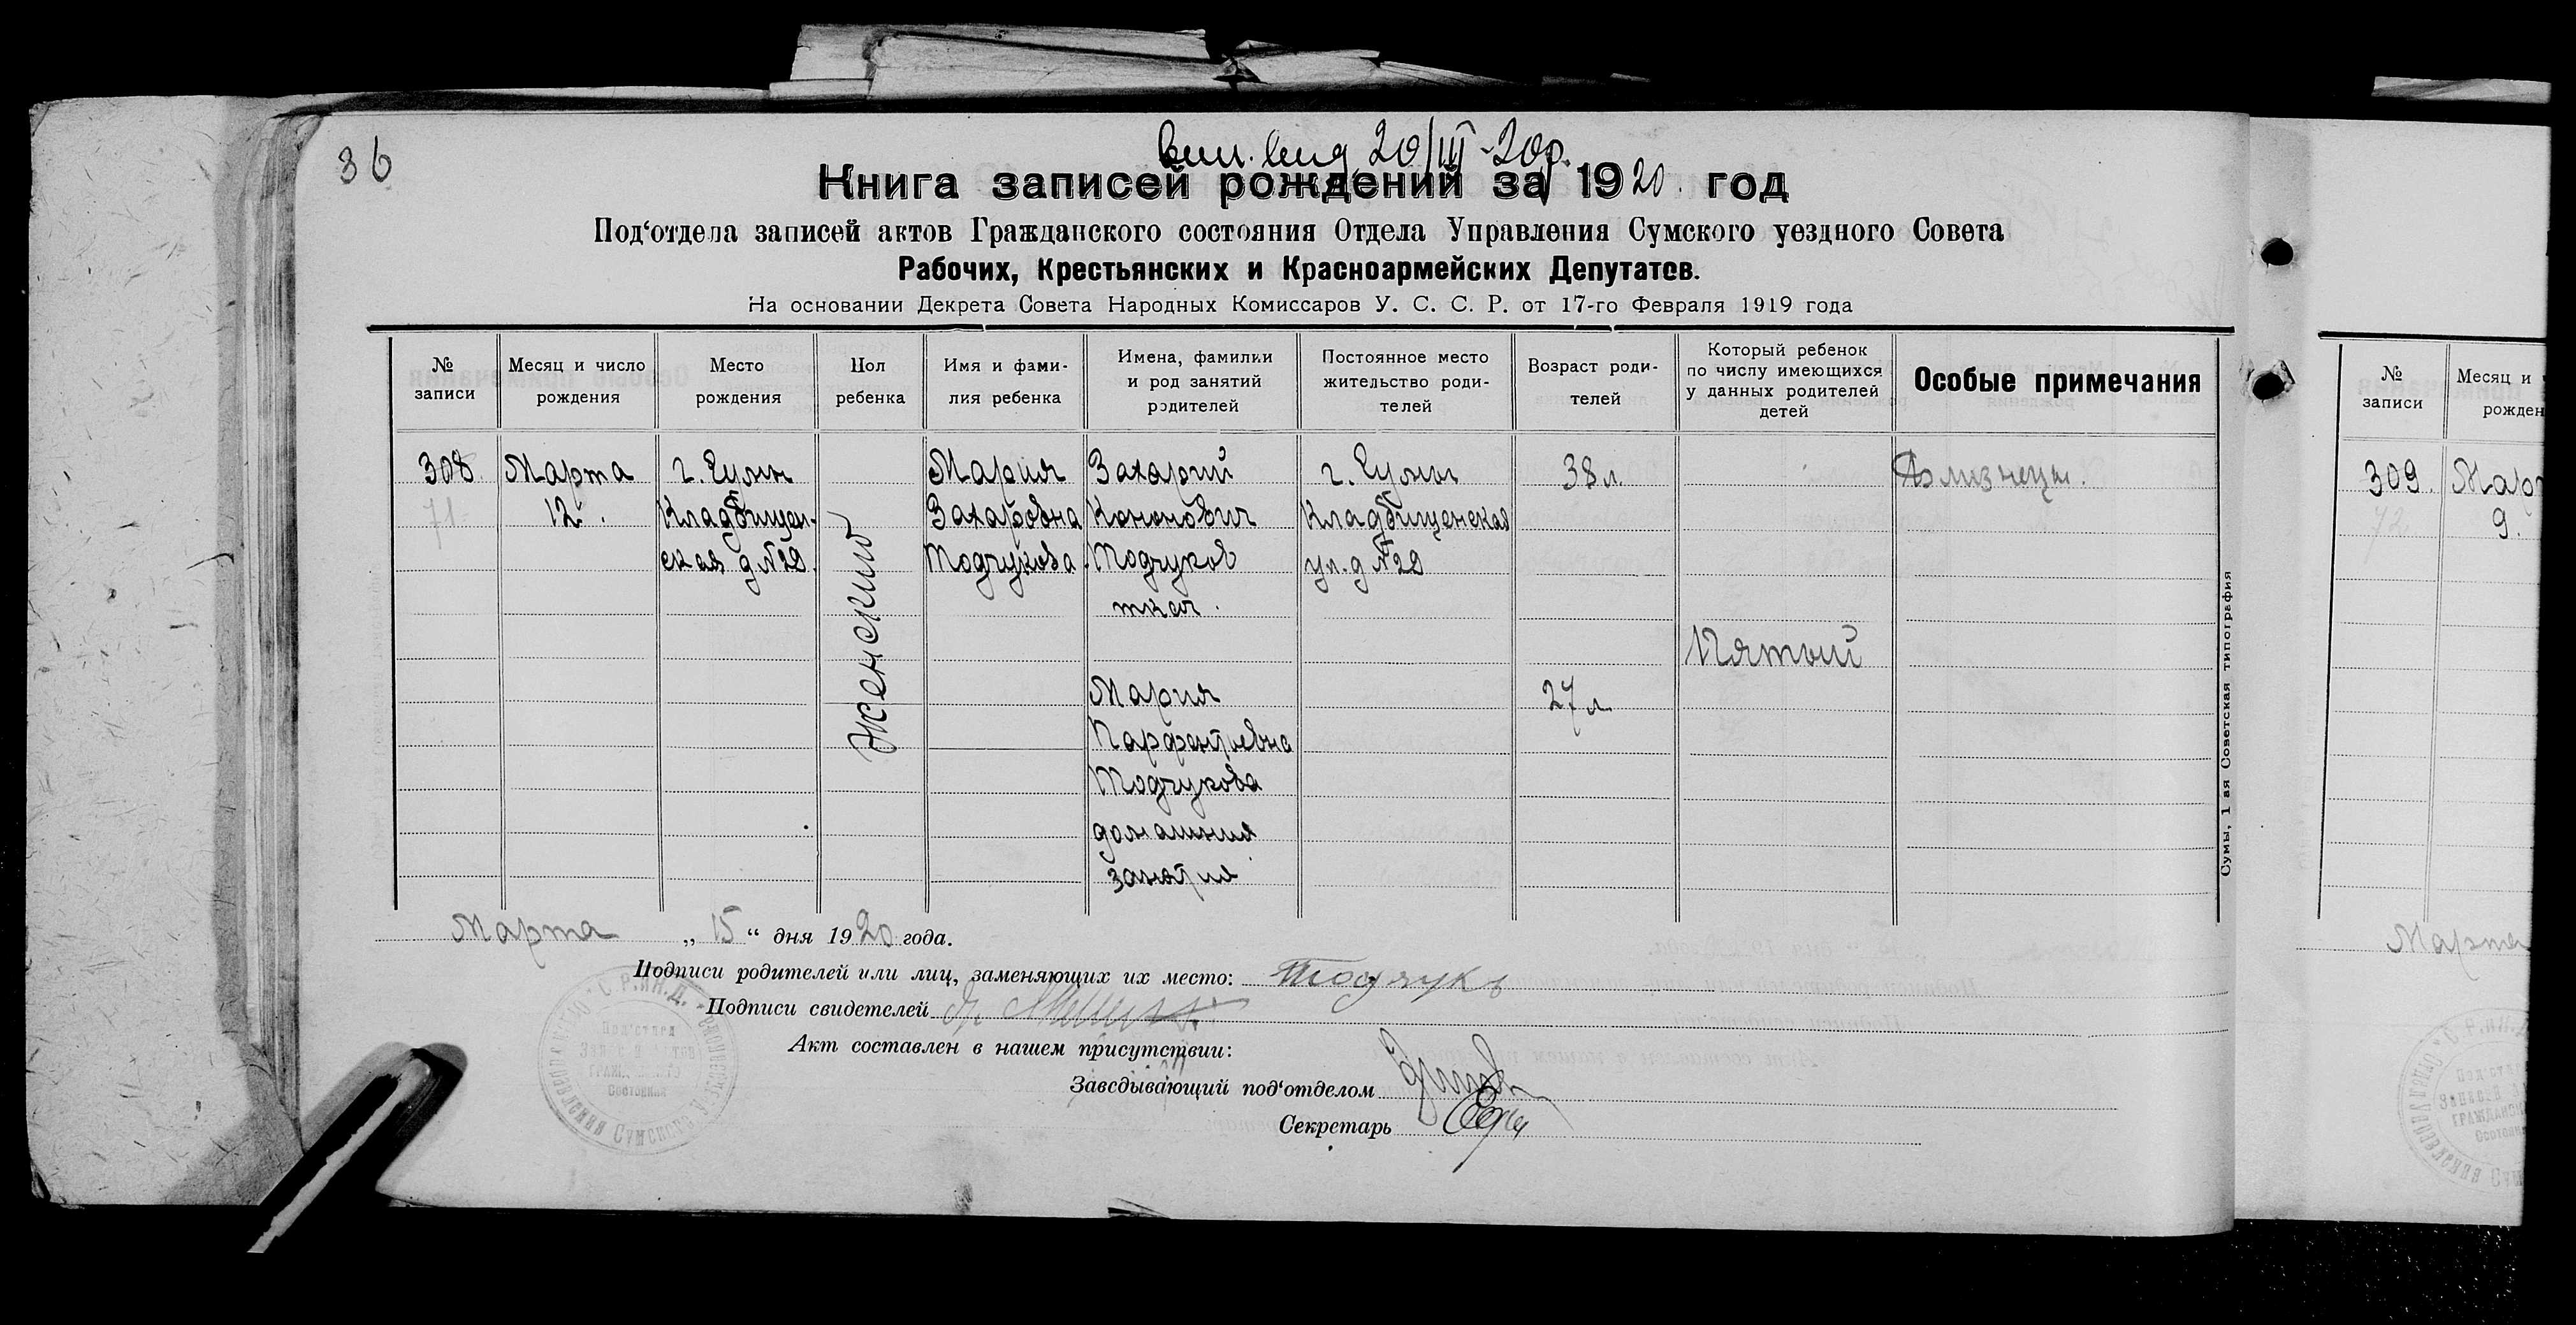 36
вип. вид 20/III-20р.
Книга записей рождений за 1920. год
Под‘отдела записей актов Гражданского состояния Отдела Управления Сумского уездного Совета
Рабочих, Крестьянских и Красноармейских Депутатов.
На основании Декрета Совета Народных Комиссаров У. С. С. Р. от 17-го Февраля 1919 года
№ записи
Месяц и число рождения
Место рождения
Пол ребенка
Имя и фами-
лия ребенка
Имена, фамилии
и род занятий
родителей
Постоянное место
жительство роди-
телей
Возраст роди-
телей
Который ребенок
по числу имеющихся
у данных родителей
детей
Особые примечания
308.
71
Марта
12.
г. Сумы
Кладбищен-
ская д №29.
Женский
Мария
Захаровна
Тодчукова.
Захарий
Кононович
Тодчуков
ткач.
Мария
Парфентиевна
Тодчукова
домашния
занятия
г. Сумы
Кладбищенская
ул. д №29
38 л.
27 л.
Пятый
Близнецы.
Марта „ 15 “ дня 1920 года.
Подписи родителей или лиц, заменяющих их место: Тодчуков
Подписи свидетелей
Акт составлен в нашем присутствии:
Заведывающий под‘отделом
Секретарь
Сумы, 1-ая Советская типография
Под‘отдел
Записи Актов
Гражданского
Состояния
№
записи
Месяц и
рожден
309.
72
Мар
9.
Марта